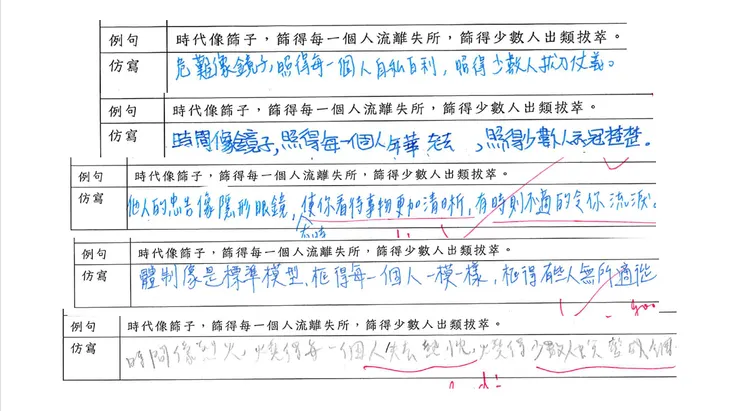 例句 時代像篩子，篩得每一個人流離失所，篩得少數人出類拔萃。
仿寫 危難像鏡子，照得每一個人自私自利，照得少數人拔刀仗義。
例句 時代像篩子，篩得每一個人流離失所，篩得少數人出類拔萃。
仿寫 時間像鏡子，照得每一個人年華老去，照得少數人衣冠楚楚。
例句 時代像篩子，篩得每一個人流離失所，篩得少數人出類拔萃。
仿寫 他人的忠告像隱形眼鏡，使你看待事物更加清晰，有時則不適的令你流淚。
有時
例句 時代像篩子，篩得每一個人流離失所，篩得少數人出類拔萃。
仿寫 體制像是標準模型，框得每一個人一模一樣，框得有些人無所適從
goo
例句 時代像篩子，篩得每一個人流離失所，篩得少數人出類拔萃。
仿寫 時間像烈火，燒得每一個人失去 ，燒得少數人